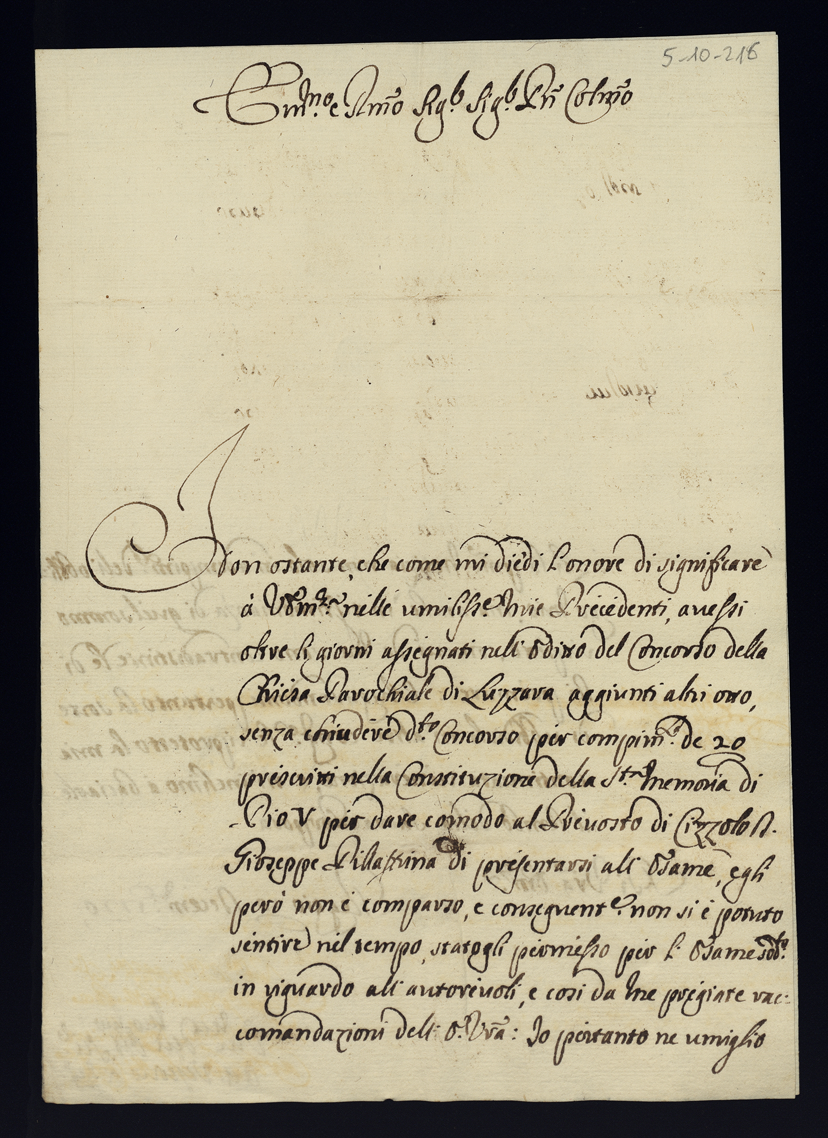 5-10-216
Em.mo e Rmo Sig.r Sig.r Prn Colmo
Non ostante, che come mi diedi l'onore di significare
à V. Em.za nelle umiliss.e mie Precedenti, avessi
oltre li giorni assegnati nell'Editto del Concorso della
Chiesa Parochiale di Luzzara aggiunti altri otto,
senza chiudere d.to Concorso per compim.to de 20
prescritti nella Constituzione della S.ta memoria di
Pio V per dare comodo al Prevosto di Cizzolo D.
Gioseppe Pillastrina di presentarsi all'Esame, egli
però non è comparso, e conseguent.e non si è potuto
sentire nel tempo, statogli permesso per l'Esame sod.o
in riguardo all'autorevoli, e così da me pregiate rac:
comandazioni dell'E. Vra: Io pertanto ne umiglio